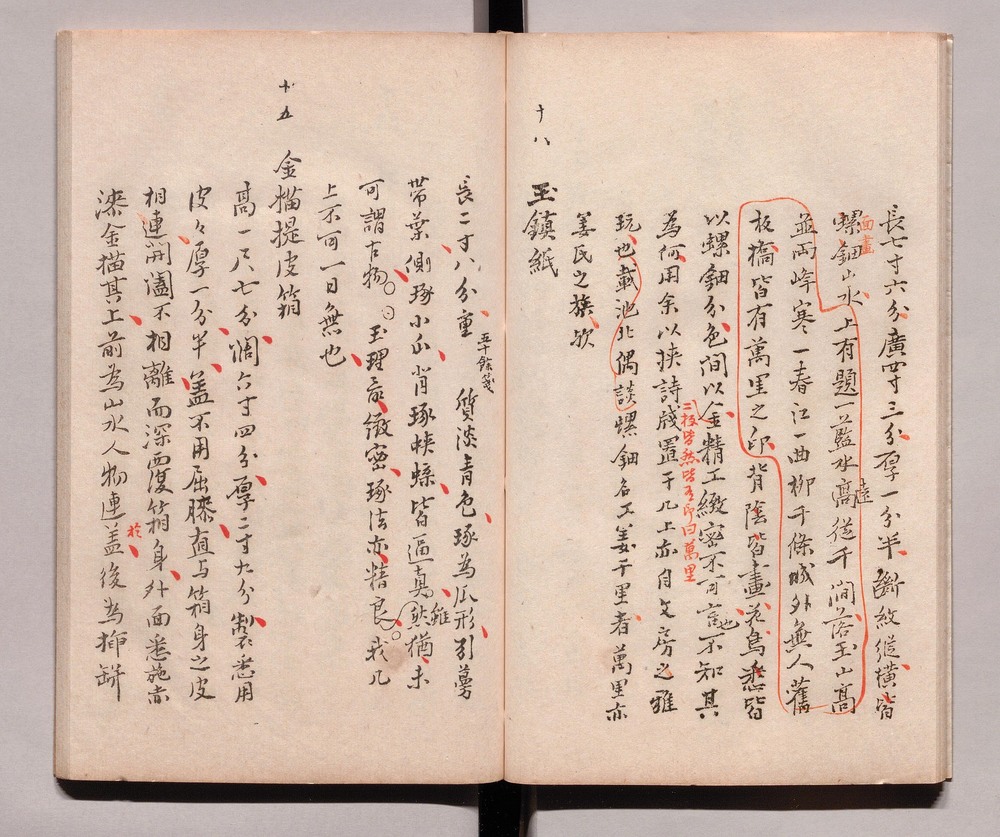 長七寸六分廣四寸三分厚一分半斷紋縱橫皆
面畫
螺鈿山水上有題一藍水遠高從千澗落玉山高
並兩峰寒一春江一曲柳千條城外無人舊
板橋皆有萬里之印背陰皆畫花鳥悉皆
以螺鈿分色間以金精工緻密不可言也不知其
二板皆然皆有印曰萬里
為何用余以挾詩牋置于几上亦自文房之雅
玩也載池北偶談螺鈿名工姜千里者萬里亦
姜氏之族欤
十八
玉鎮紙
長二寸八分重五十錢 質淡青色琢為瓜形引蔓
帶葉側琢小山背琢蛺蝶皆逼真然雖猶未
可謂古物玉理高緻密琢法亦精良我几
上不可一日無也
十五
金描提皮箱
高一尺七分濶六寸四分厚二寸九分製悉用
皮々厚一分半盖不用屈膝直与箱身之皮
相連開濶不相離而深覆箱身外面悉施赤
於
漆金描其上前為山水人物連盖後為挿缾